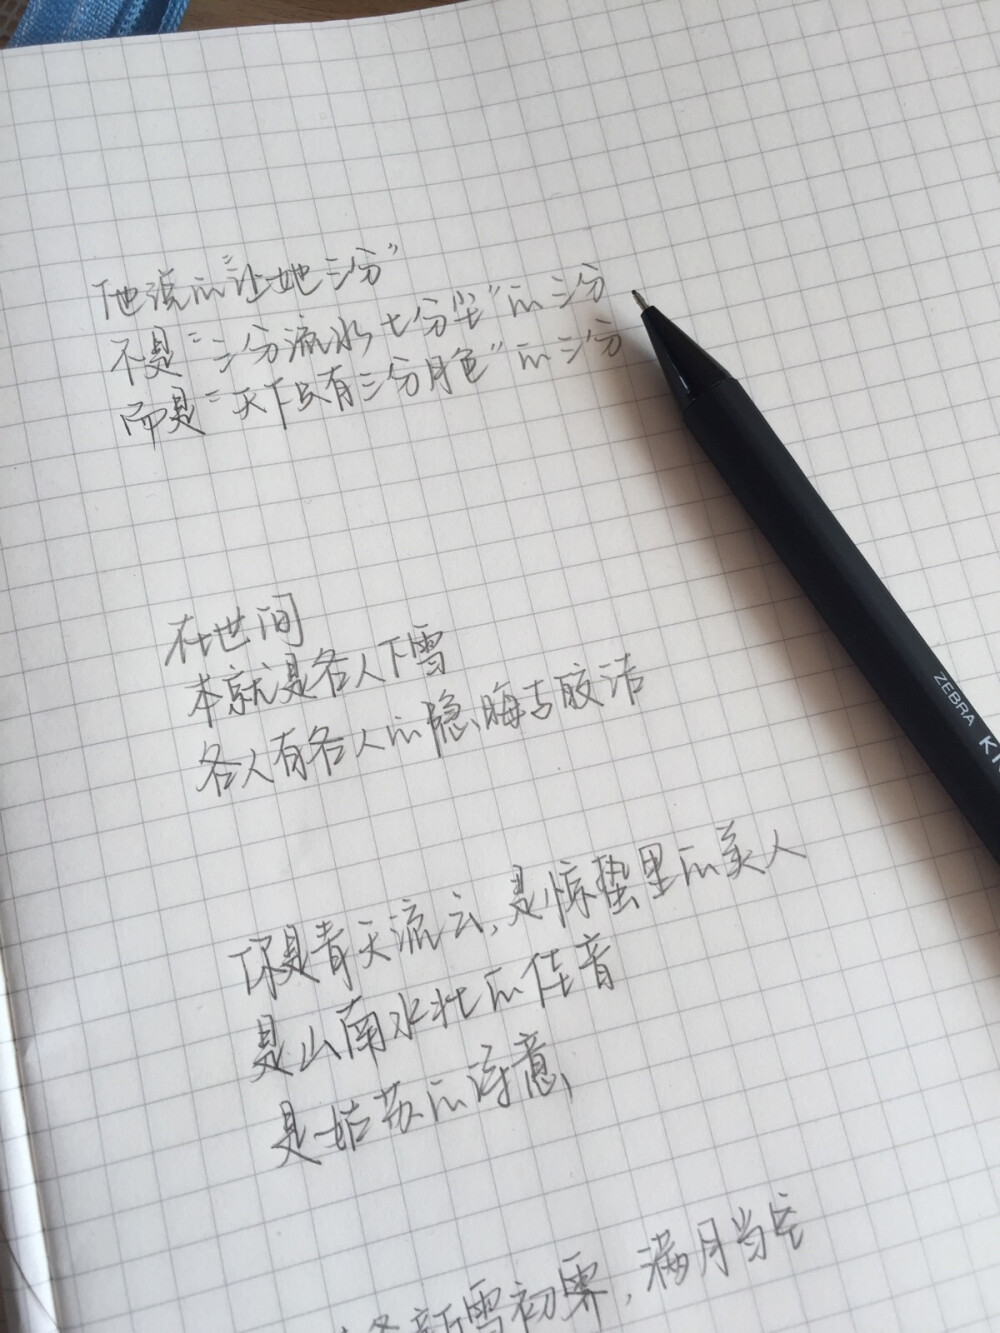 「他说的“让她三分”
不是“三分流水七分尘”的三分
而是“天下只有三分月色”的三分
在世间
本就是各人下雪
各人有各人的隐晦与皎洁
你是青天流云,是惊蛰里的美人
是山南水北的佳音
是姑苏的诗意
新雪初霁,满月当空
ZEBRA